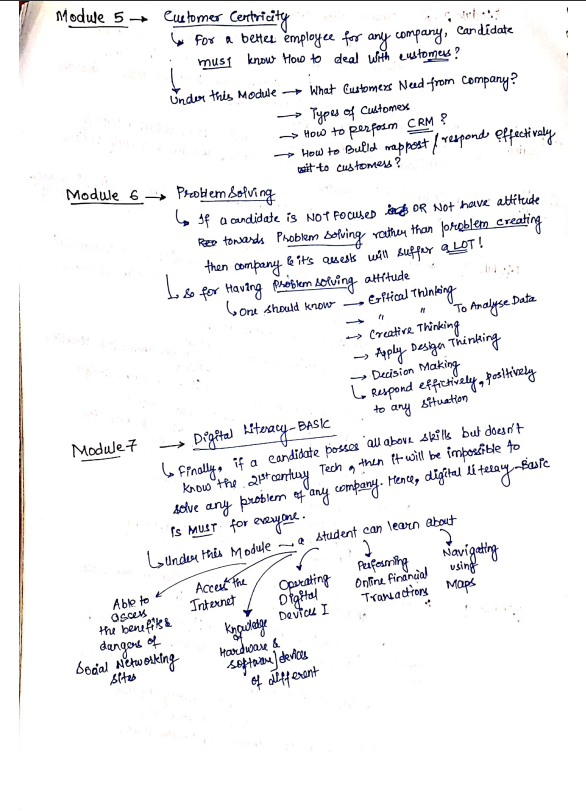 Module 5 → Customer Centricity
↳ For a better employee for any company, candidate
must know How to deal with customers?
↳ Under this Module → What Customers Need from Company?
→ Types of Customers
→ How to perform CRM?
→ How to Build rapport / respond effectively
to customers?
Module 6 → Problem Solving
↳ If a candidate is NOT FOCUSED OR Not have attitude
towards Problem Solving rather than problem creating
then company & it's assests will suffer a LOT!
↳ So for Having problem solving attitude
↳ One should know → Critical Thinking
→ " " To Analyse Data
→ Creative Thinking
→ Apply Design Thinking
→ Decision Making
↳ Respond effictively, positively
to any situation
Module 7 → Digital Literacy - BASIC
↳ Finally, if a candidate posses all above skills but doesn't
know the 21st century Tech, then it will be impossible to
solve any problem of any company. Hence, digital literay - Basic
is MUST for everyone.
↳ Under this Module → a student can learn about
Able to
access
the benefits &
dangers of
Social Networking
Sites
Access the
Internet
Knowledge
of
Hardware &
software/devices
of different
Operating
Digital
Devices I
Performing
Online financial
Transactions
Navigating
using
Maps